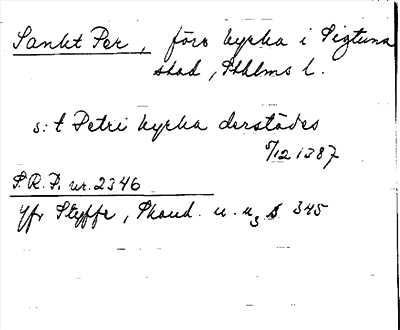 Sankt Per, förs kyrka i Sigtuna
stad, Sthlms l.
s:t Petri kyrka derstädes
5/12 1387
S.R.P. nr. 2346
Jfr Styffe, Skand. u. u₃ s 345